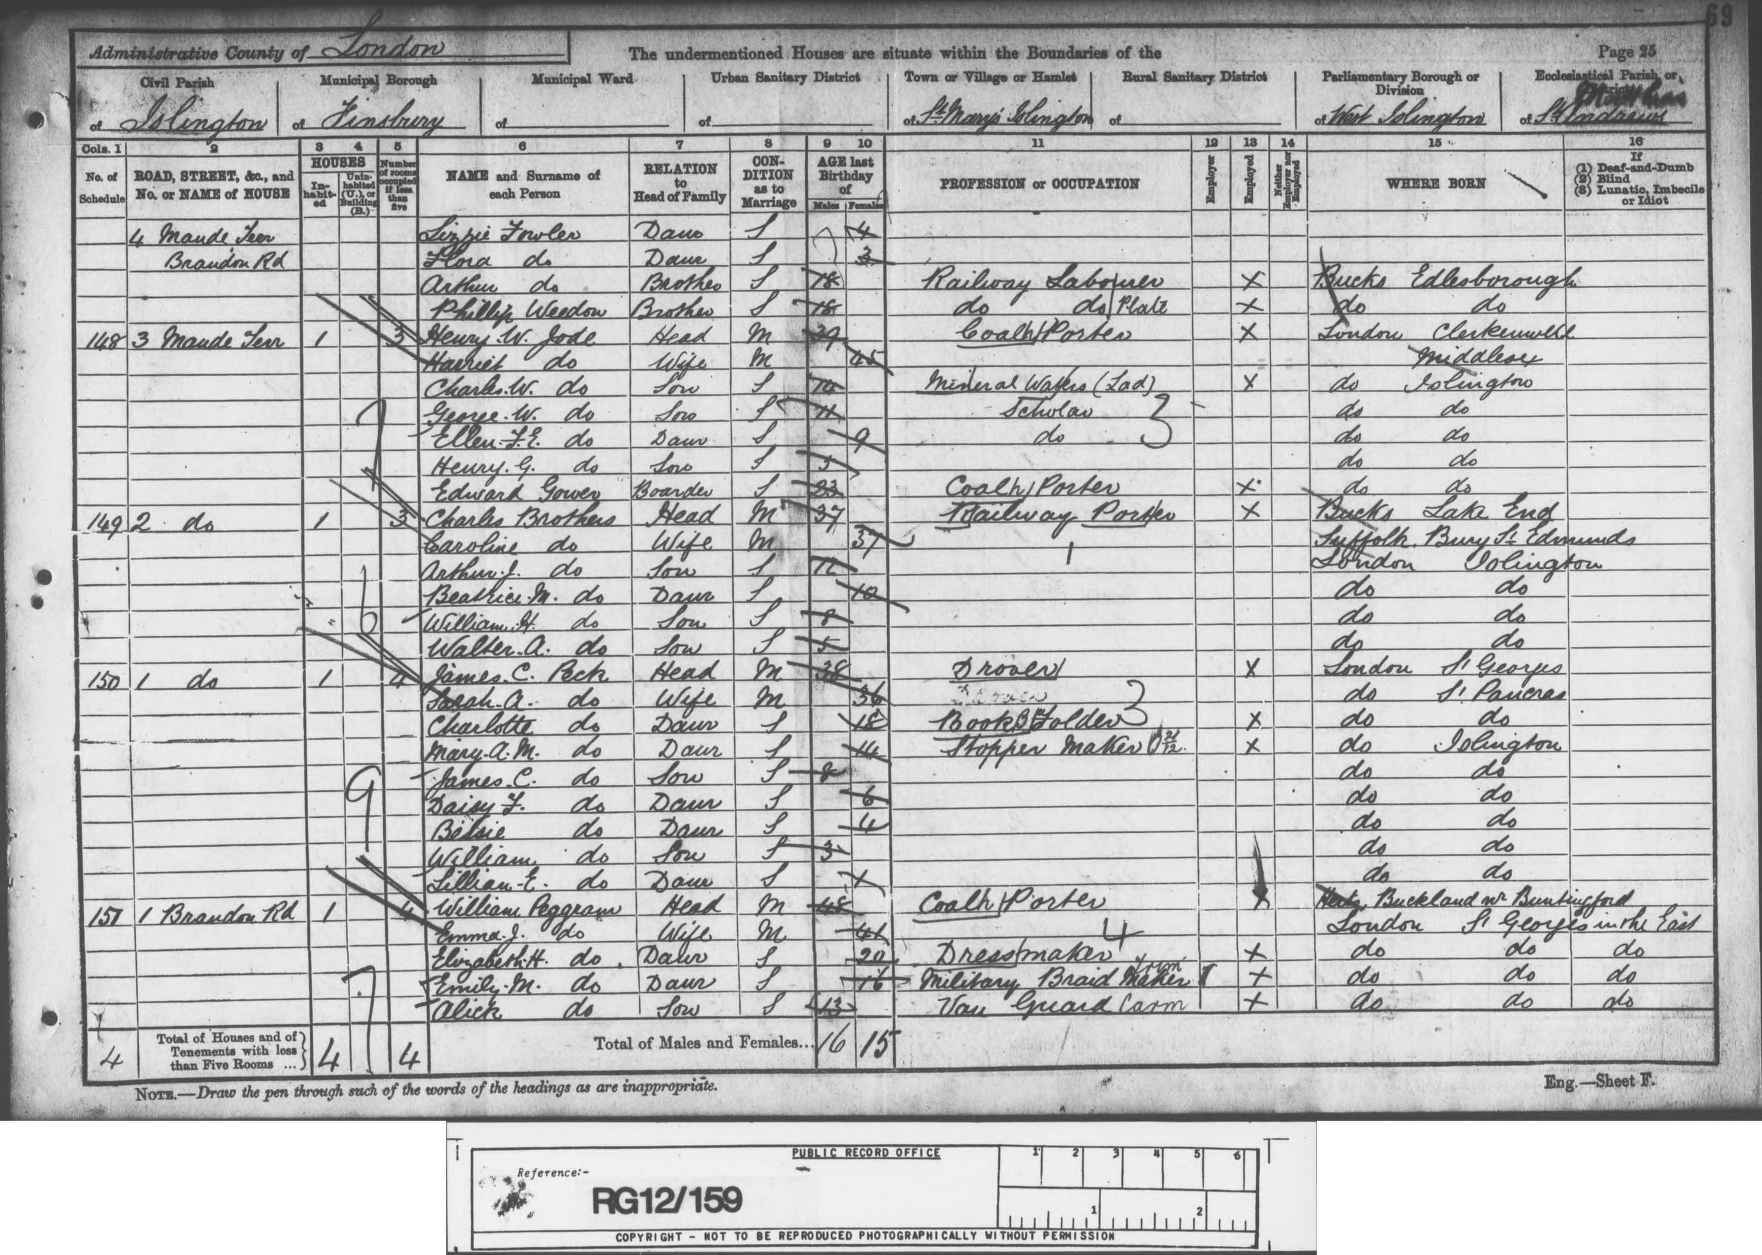 69
Administrative County of London The undermentioned Houses are situate within the Boundaries of the Page 25
Civil Parish Municipal Borough Municipal Ward Urban Sanitary District Town or Village or Hamlet Rural Sanitary District Parliamentary Borough or Division Ecclesiastical Parish or
of Islington of Finsbury of of of St Mary's Islington of of West Islington of St Andrews
Cols. 1 2 3 4 5 6 7 8 9 10 11 12 13 14 15 16
No. of Schedule ROAD, STREET, &c., and No. or NAME of HOUSE HOUSES In-habit-ed Unin-habited (U.), or Building (B.) Number of rooms occupied if less than five NAME and Surname of each Person RELATION to Head of Family CON-DITION as to Marriage AGE last Birthday of Males Females PROFESSION or OCCUPATION Employer Employed Neither Employer nor Employed WHERE BORN If (1) Deaf-and-Dumb (2) Blind (3) Lunatic, Imbecile or Idiot
4 Maude Terr Lizzie Fowler Daur S 4
Brandon Rd Flora do Daur S 3
Arthur do Brother S 18 Railway Labourer X Bucks Edlesborough
Phillip Weedon Brother S 18 do do Plate X do do
148 3 Maude Terr 1 3 Henry W. Jode Head M 39 Coal Porter X London Clerkenwell
Harriet do Wife M 45 Middlesex
Charles W. do Son S 14 Mineral Waters (Lad) X do Islington
George W. do Son S 11 Scholar do do
Ellen F.E. do Daur S 9 do do do
Henry G. do Son S 5 do do
Edward Gower Boarder S 23 Coal Porter X do do
149 2 do 1 3 Charles Brothers Head M 37 Railway Porter X Bucks Lake End
Caroline do Wife M 37 Suffolk Bury St Edmunds
Arthur J. do Son S 12 London Islington
Beatrice M. do Daur S 10 do do
William H. do Son S 8 do do
Walter A. do Son S 5 do do
150 1 do 1 4 James C. Peck Head M 38 Drover X London St Georges
Sarah A. do Wife M 36 do St Pancras
Charlotte do Daur S 18 Book Folder X do do
Mary A. M. do Daur S 14 Stopper Maker X do Islington
James C. do Son S 8 do do
Daisy F. do Daur S 6 do do
Bessie do Daur S 4 do do
William do Son S 3 do do
Lillian E. do Daur S do do
151 1 Brandon Rd 1 4 William Peggram Head M 48 Coal Porter X Herts Buckland nr Buntingford
Emma J. do Wife M 41 London St Georges in the East
Elizabeth H. do Daur S 20 Dressmaker X do do do
Emily M. do Daur S 16 Military Braid Maker X do do do
Alick do Son S 13 Van Guard X do do do
4 Total of Houses and of Tenements with less than Five Rooms ... 4 4 Total of Males and Females... 16 15
NOTE.—Draw the pen through such of the words of the headings as are inappropriate. Eng.—Sheet F.
PUBLIC RECORD OFFICE 1 2 3 4 5 6
Reference:-
RG12/159 1 2
COPYRIGHT - NOT TO BE REPRODUCED PHOTOGRAPHICALLY WITHOUT PERMISSION